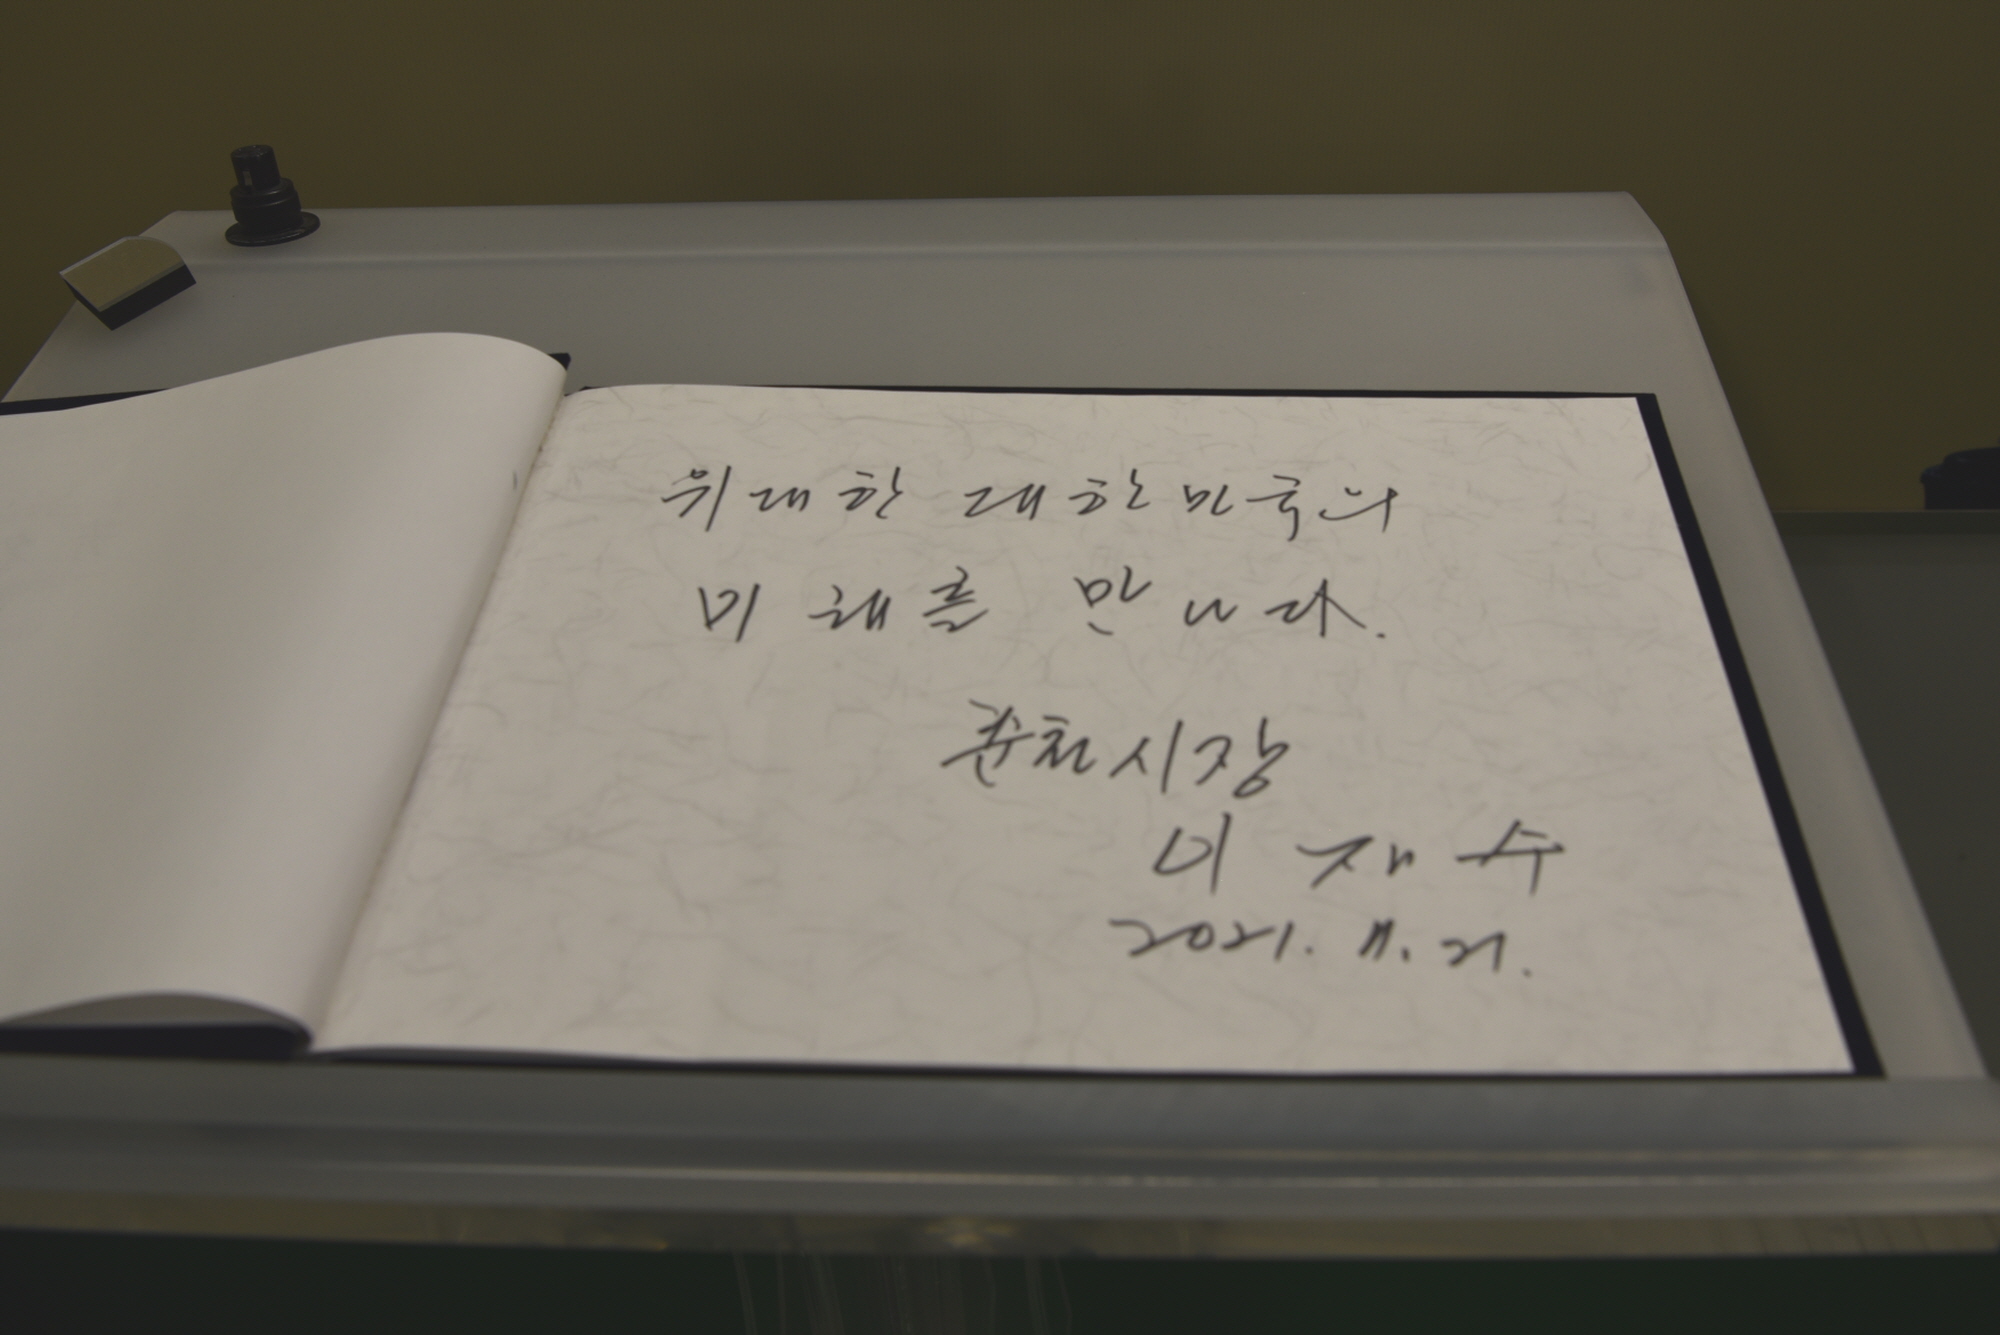 위대한 대한민국의
미래를 만나다.
춘천시장
이재수
2021. 11. 21.